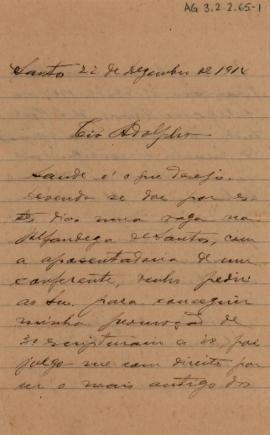 AG 3.2.2.65-1
Santos 22 de Dezembro de 1914
Tio Adolpho
Saude é o que desejo.
Devendo se dar por es
tes dias uma vaga na
Alfandega de Santos, com
a aposentadoria de um
conferente, venho pedir
ao Snr. para conseguir
minha promoção de
3º escripturario a 2º, pois
julgo me com direito por
ser o mais antigo dos